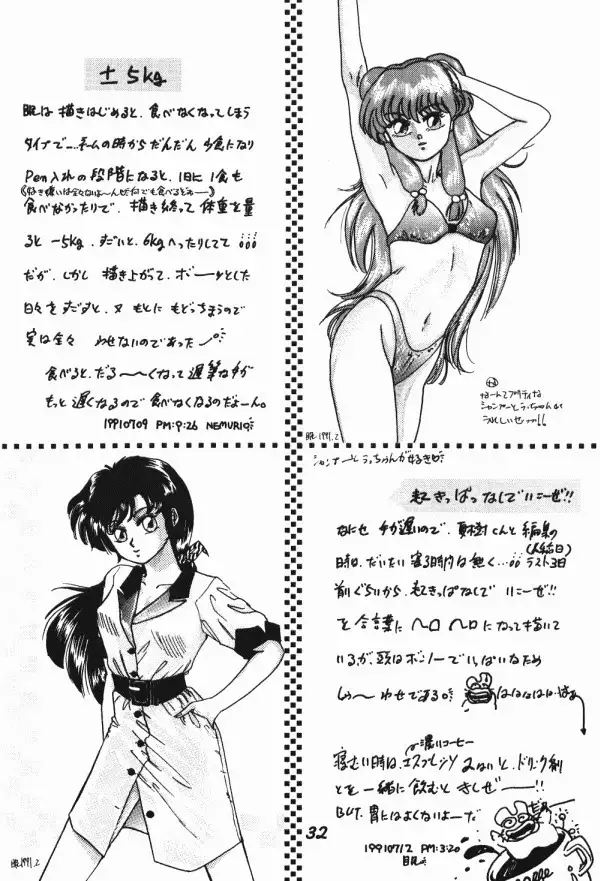 ± 5kg
眠は 描きはじめると、食べなくなってしまう
タイプで…ネームの時からだんだん 少食になり
Pen入れの段階になると、1日に1食も
食べなかったりで、描き終って 体重を量
ると −5kg、すごいと、6kgへったりしてて
だが、しかし 描き上がって、ボーーッとした
日々を すごすと、又 もとに もどっちまうので
実は全々 やせないのであった
食べると、だる〜〜くなって 遅筆な手が
もっと 遅くなるので 食べなくなるのだよーん。
19910709 PM:9:26 NEMURIO
なーんてプリティな
シャンプーとうっちゃんが
うれしいぜっ!!
眠.1991.2
シャンプーとうっちゃんが好きぜ
起きっぱなしでいこーぜ!!
なにせ 手が遅いので、夏樹くんと 編集の
時は、だいたい 寝る時間は 無く… ラスト3日
前ぐらいから、起きっぱなしで いこーぜ!!
を 合言葉に ヘロ ヘロ になって 描いて
いるが、頭はボンノーでいっぱいなため
しゅ〜 わせである。
はははははは
濃いコーヒー
寝むい時は、エスプレッソ
とを 一緒に 飲むと きくぜーー!!
BUT. 胃にはよくないよーだ
19910712 PM:3:20
眠
眠.1991.2
32